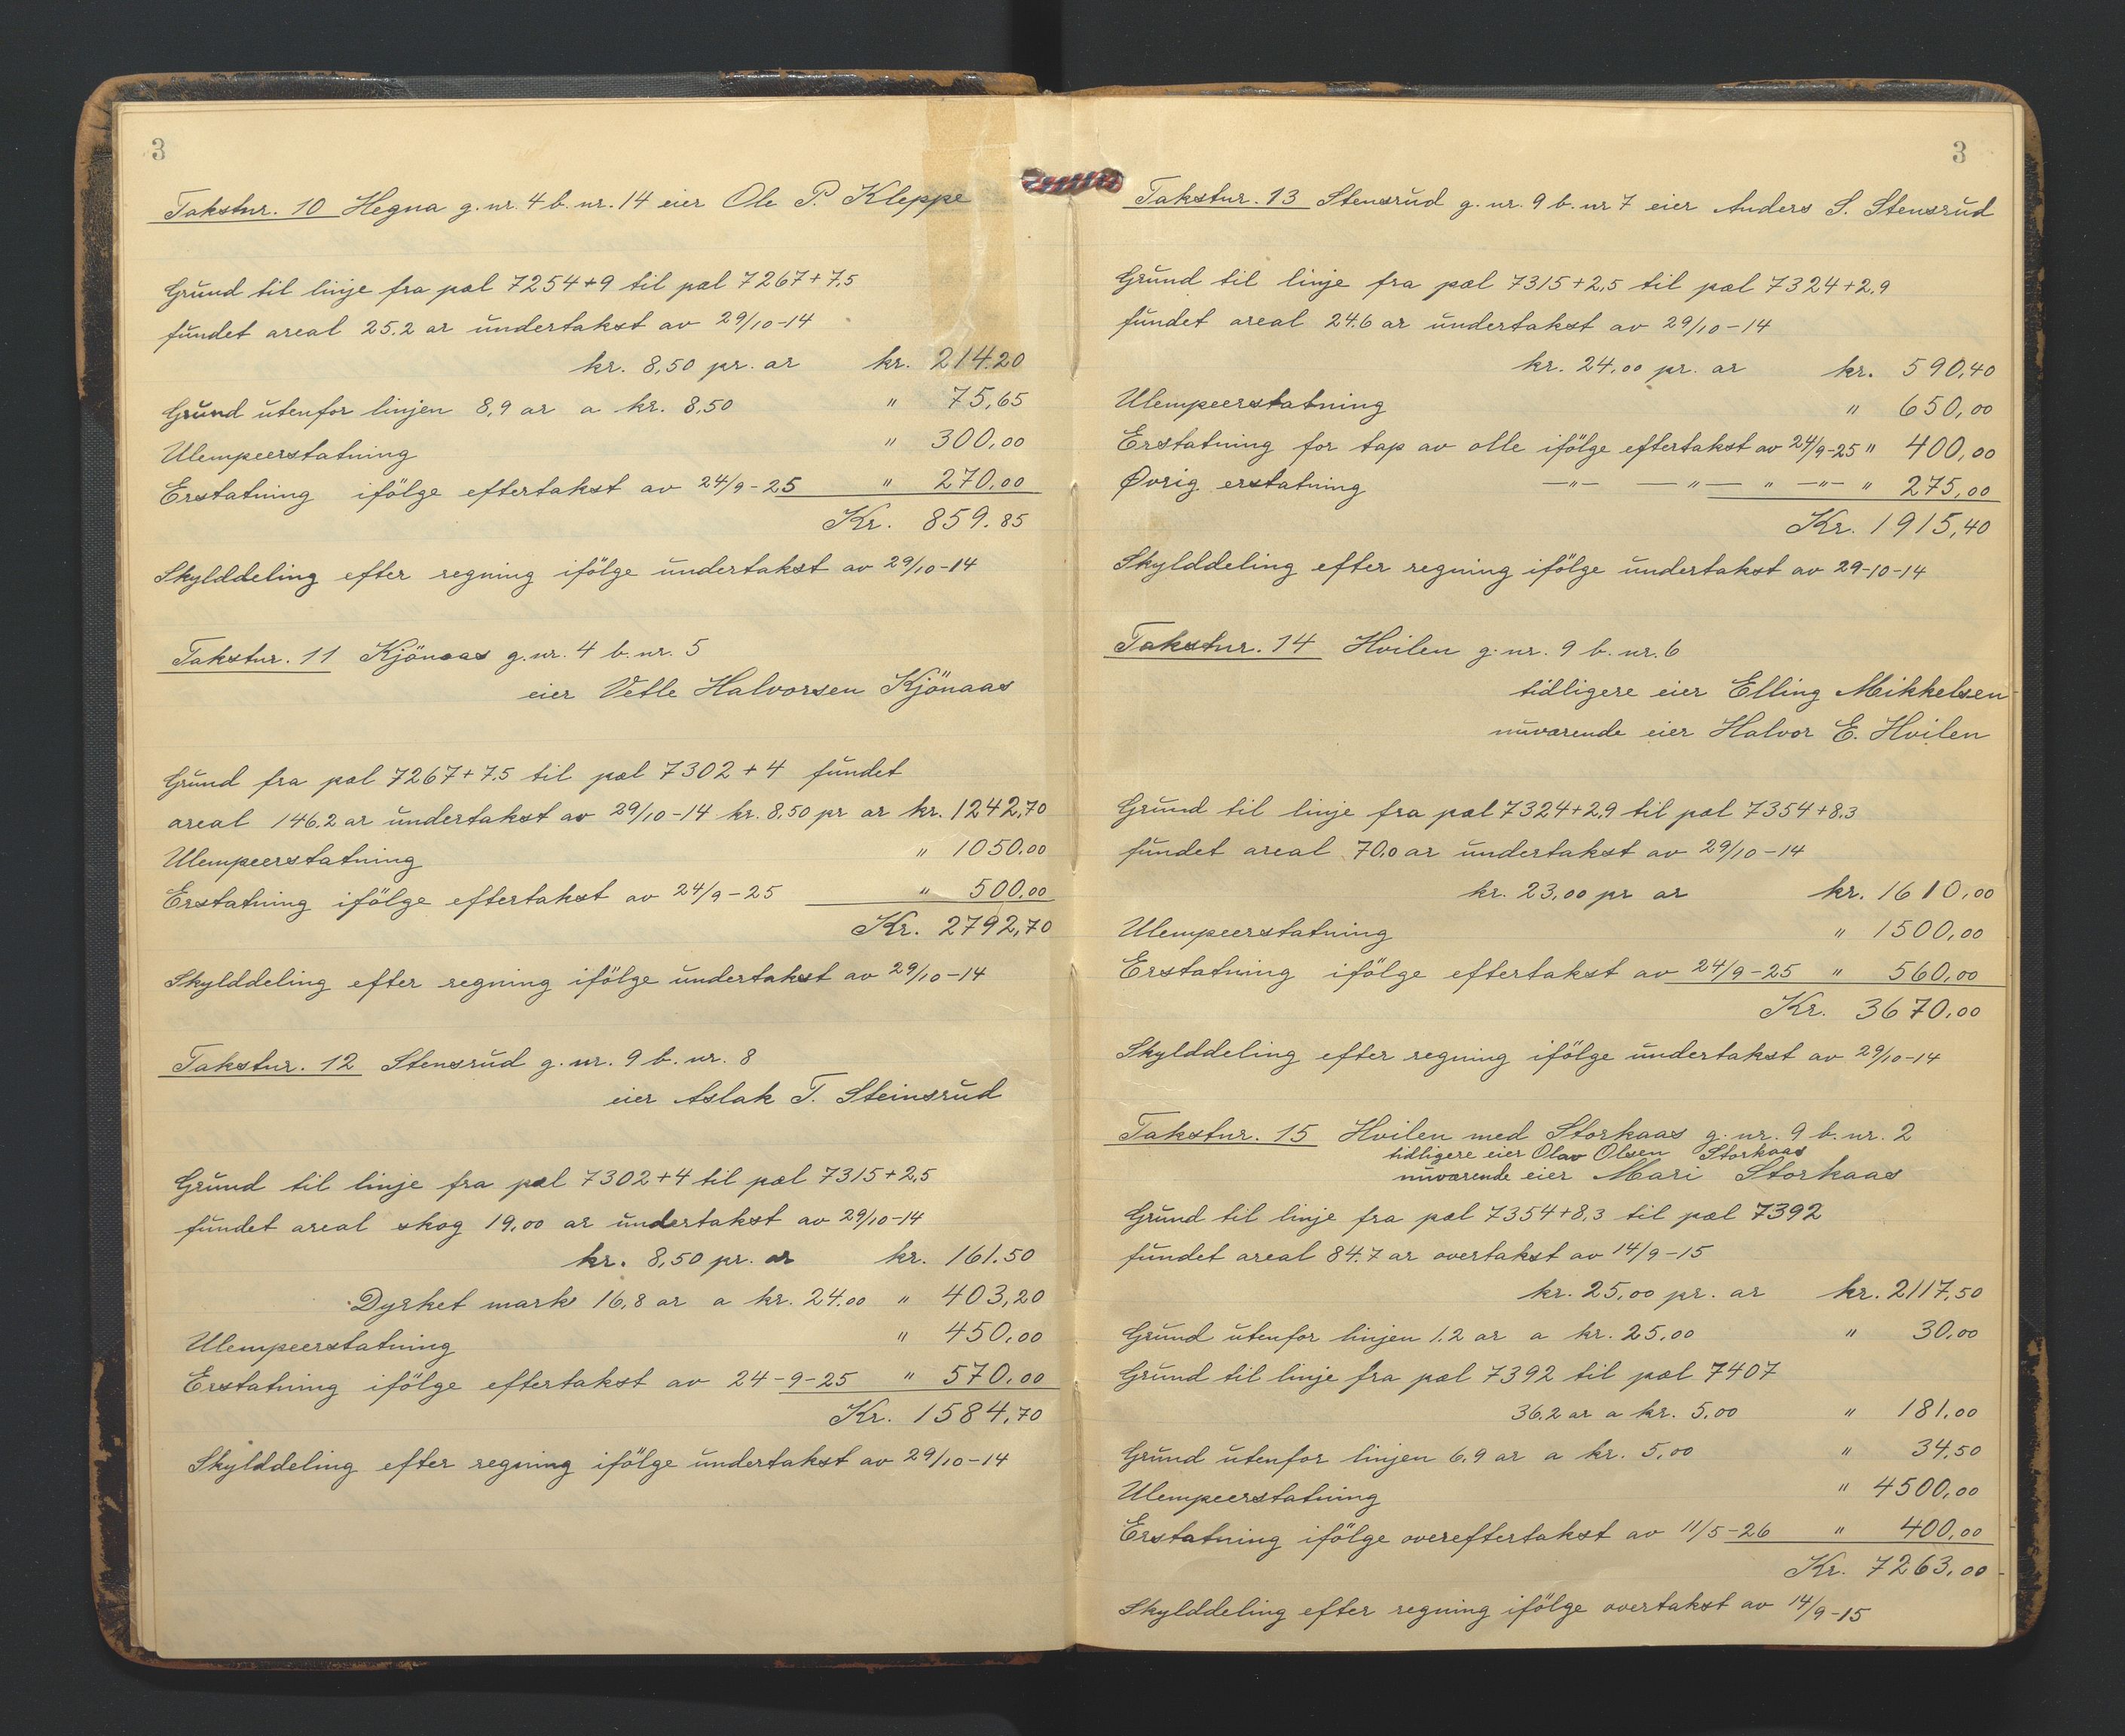 3
Takstnr. 10 Hegna g.nr. 4 b.nr. 14 eier Ole P. Kleppe
Grund til linje fra pæl 7254+9 til pæl 7267+7,5
fundet areal 25.2 ar undertakst av 29/10-14
kr. 8,50 pr. ar kr. 214.20
Grund utenfor linjen 8,9 ar a kr. 8,50 " 75,65
Ulempeerstatning " 300,00
Erstatning ifölge eftertakst av 24/9-25 " 270,00
Kr. 859.85
Skylddeling efter regning ifölge undertakst av 29/10-14
Takstnr. 11 Kjönaas g.nr. 4 b.nr. 5
eier Vetle Halvorsen Kjönaas
Grund fra pæl 7267+7,5 til pæl 7302+4 fundet
areal 146,2 ar undertakst av 29/10-14 kr. 8,50 pr ar kr. 1242,70
Ulempeerstatning " 1050,00
Erstatning ifölge eftertakst av 24/9-25 " 500,00
Kr. 2792,70
Skylddeling efter regning ifölge undertakst av 29/10-14
Takstnr. 12 Stensrud g.nr. 9 b.nr. 8
eier Aslak T. Steinsrud
Grund til linje fra pæl 7302+4 til pæl 7315+2,5
fundet areal skog 19,00 ar undertakst av 29/10-14
kr. 8,50 pr. ar kr. 161.50
Dyrket mark 16,8 ar a kr. 24.00 " 403,20
Ulempeerstatning " 450,00
Erstatning ifölge eftertakst av 24-9-25 " 570,00
Kr. 1584,70
Skylddeling efter regning ifölge undertakst av 29/10-14
3
Takstnr. 13 Stensrud g.nr. 9 b.nr 7 eier Anders S. Stensrud
Grund til linje fra pæl 7315+2,5 til pæl 7324+2,9
fundet areal 24.6 ar undertakst av 29/10-14
kr. 24,00 pr. ar kr. 590,40
Ulempeerstatning " 650,00
Erstatning for tap av olle ifölge eftertakst av 24/9-25 " 400,00
Øvrig erstatning —"— —"— " —"— " 275,00
Kr. 1915,40
Skylddeling efter regning ifölge undertakst av 29-10-14
Takstnr. 14 Hvilen g.nr. 9 b.nr. 6
tidligere eier Elling Mikkelsen
nuværende eier Halvor E. Hvilen
Grund til linje fra pæl 7324+2,9 til pæl 7354+8.3
fundet areal 70,0 ar undertakst av 29/10-14
kr. 23,00 pr ar kr. 1610,00
Ulempeerstatning " 1500,00
Erstatning ifölge eftertakst av 24/9-25 " 560,00
Kr. 3670,00
Skylddeling efter regning ifölge undertakst av 29/10-14
Takstnr. 15 Hvilen med Storkaas g.nr. 9 b.nr. 2
tidligere eier Olav Olsen Storkaas
nuværende eier Mari Storkaas
Grund til linje fra pæl 7354+8,3 til pæl 7392
fundet areal 84.7 ar overtakst av 14/9-15
kr. 25,00 pr. ar kr. 2117,50
Grund utenfor linjen 1.2 ar a kr. 25,00 " 30,00
Grund til linje fra pæl 7392 til pæl 7407
36,2 ar a kr. 5,00 " 181,00
Grund utenfor linjen 6,9 ar a kr. 5,00 " 34,50
Ulempeerstatning " 4500,00
Erstatning ifölge overeftertakst av 11/5-26 " 400,00
Kr. 7263,00
Skylddeling efter regning ifölge overtakst av 14/9-15